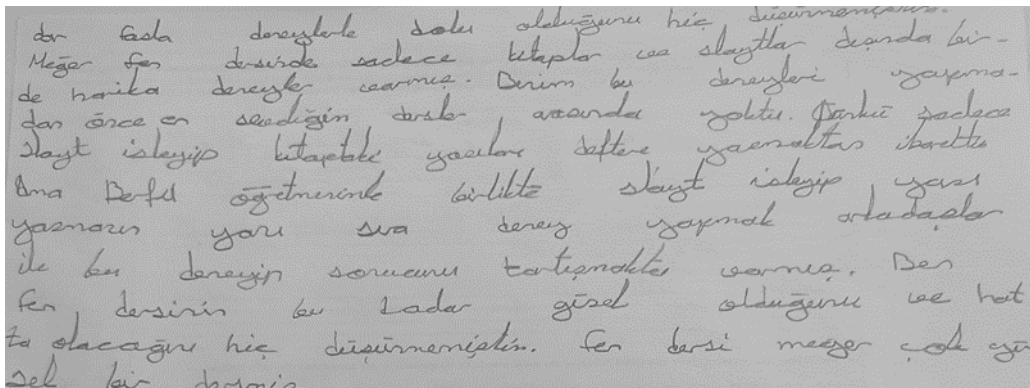 dan fazla deneylerle dolu olduğunu hiç düşünmemiştim.
Meğer fen dersinde sadece kitaplar ve slaytlar dışında bir-
de harika deneyler varmış. Benim bu deneyleri yapma-
dan önce en sevdiğim dersler arasında yoktu. Çünkü sadece
slayt işleyip kitaptaki yazıları deftere yazmaktan ibaretti
Ama öğetmenimle birlikte slayt işleyip yazı
yazmanın yanı sıra deney yapmak arkadaşlar
ile bu deneyin sonucunu tartışmakta varmış. Ben
fen dersinin bu kadar güzel olduğunu ve hat
ta olacağını hiç düşünmemiştim. Fen dersi meğer çok gü
zel bir dersmiş